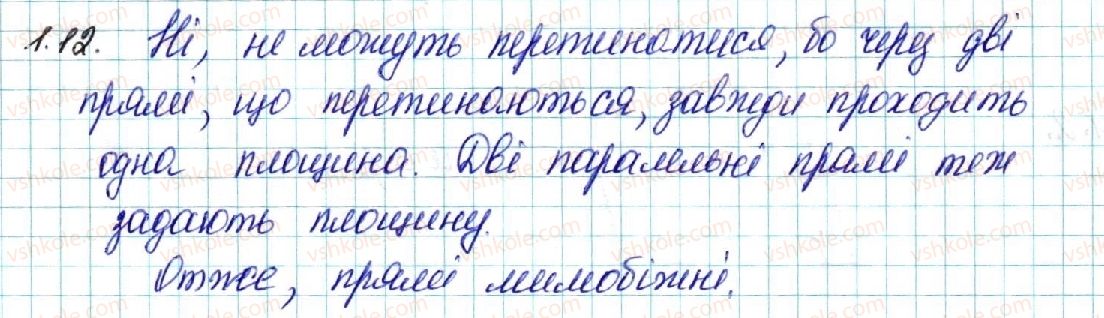 1.12. Ні, не можуть перетинатися, бо через дві
прямі, що перетинаються, завжди проходить
одна площина. Дві паралельні прямі теж
задають площину.
Отже, прямі мимобіжні.